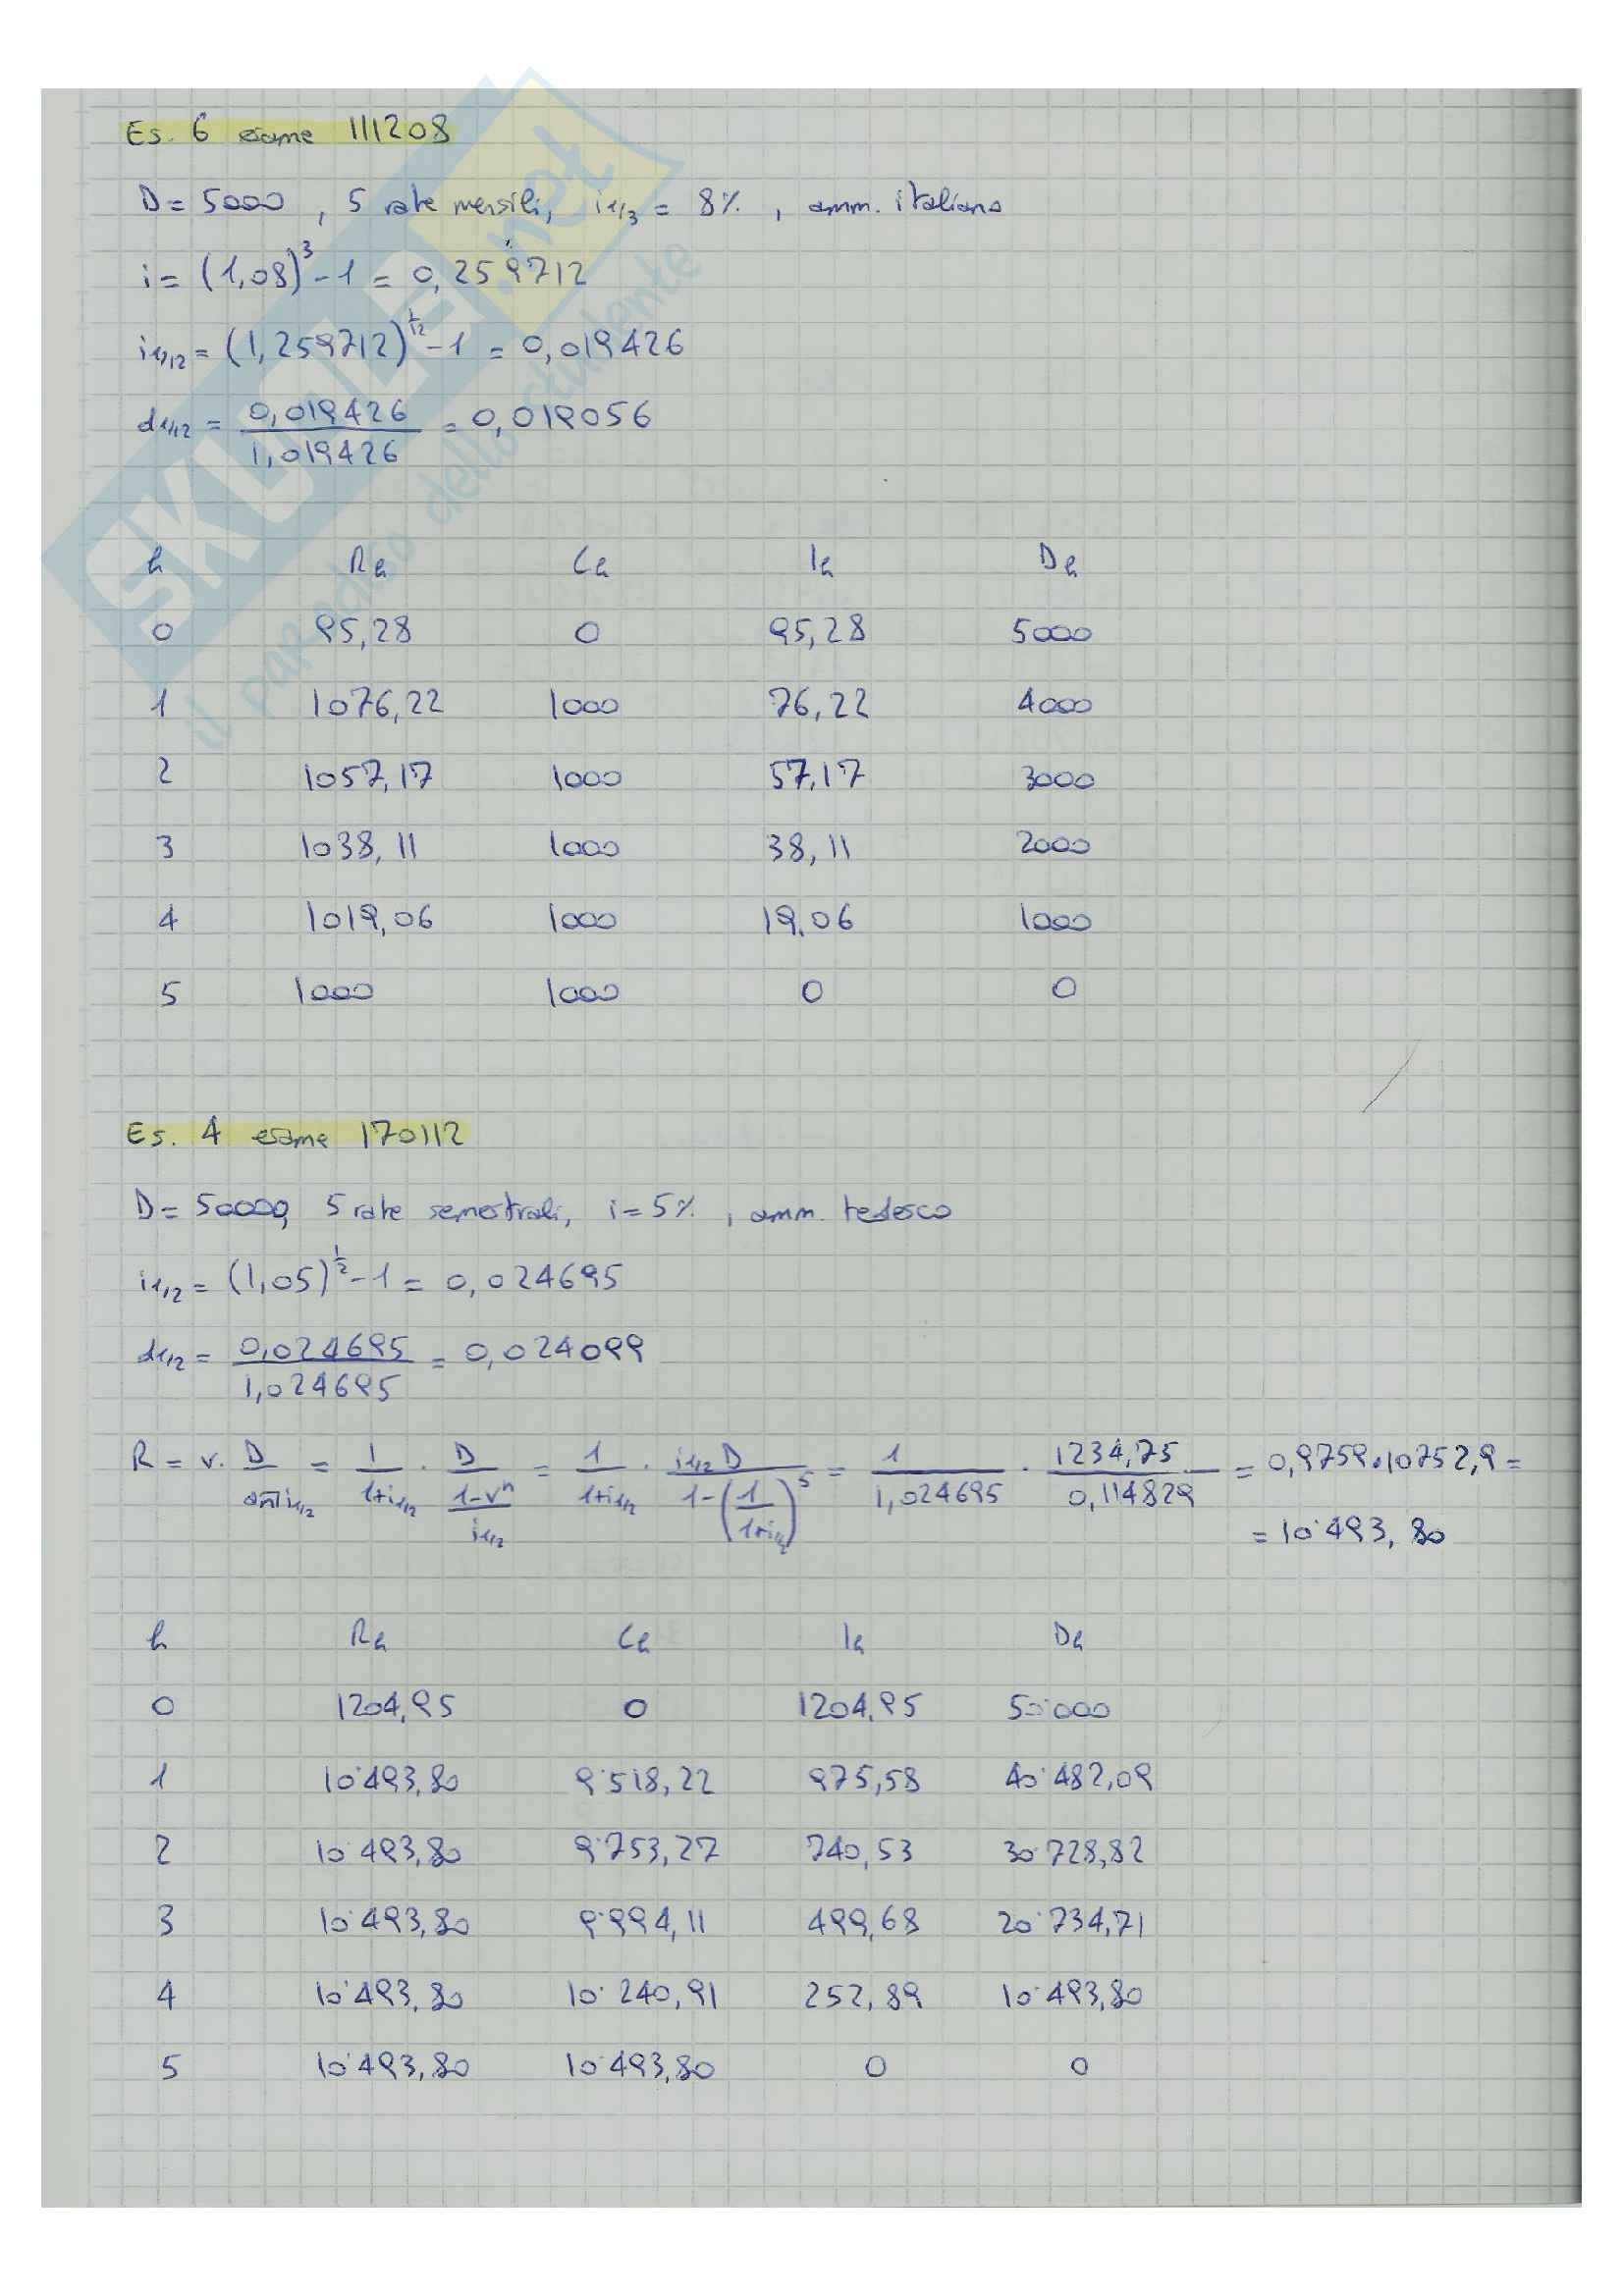 Es. 6 esame 111208
D = 5000, 5 rate mensili, i1/3 = 8%, amm. italiano
i = (1,08)^3 - 1 = 0,259712
i1/12 = (1,259712)^1/12 - 1 = 0,019426
d1/12 = 0,019426 / 1,019426 = 0,019056
h Rh Ch Ih Dh
0 95,28 0 95,28 5000
1 1076,22 1000 76,22 4000
2 1057,17 1000 57,17 3000
3 1038,11 1000 38,11 2000
4 1019,06 1000 19,06 1000
5 1000 1000 0 0
Es. 4 esame 170112
D = 50000, 5 rate semestrali, i = 5%, amm. tedesco
i1/2 = (1,05)^1/2 - 1 = 0,024695
d1/2 = 0,024695 / 1,024695 = 0,024099
R = v · D / an¬i1/2 = 1 / 1+i1/2 · D / (1-v^n / i1/2) = 1 / 1+i1/2 · i1/2 D / 1-(1 / 1+i1/2)^5 = 1 / 1,024695 · 1234,75 / 0,114829 = 0,9759·10752,9 =
= 10˙493,80
h Rh Ch Ih Dh
0 1204,95 0 1204,95 50˙000
1 10˙493,80 9˙518,22 975,58 40˙482,09
2 10˙493,80 9˙753,27 740,53 30˙728,82
3 10˙493,80 9˙994,11 499,68 20˙734,71
4 10˙493,80 10˙240,91 252,89 10˙493,80
5 10˙493,80 10˙493,80 0 0
SKUOLA.net
il paradiso dello studente